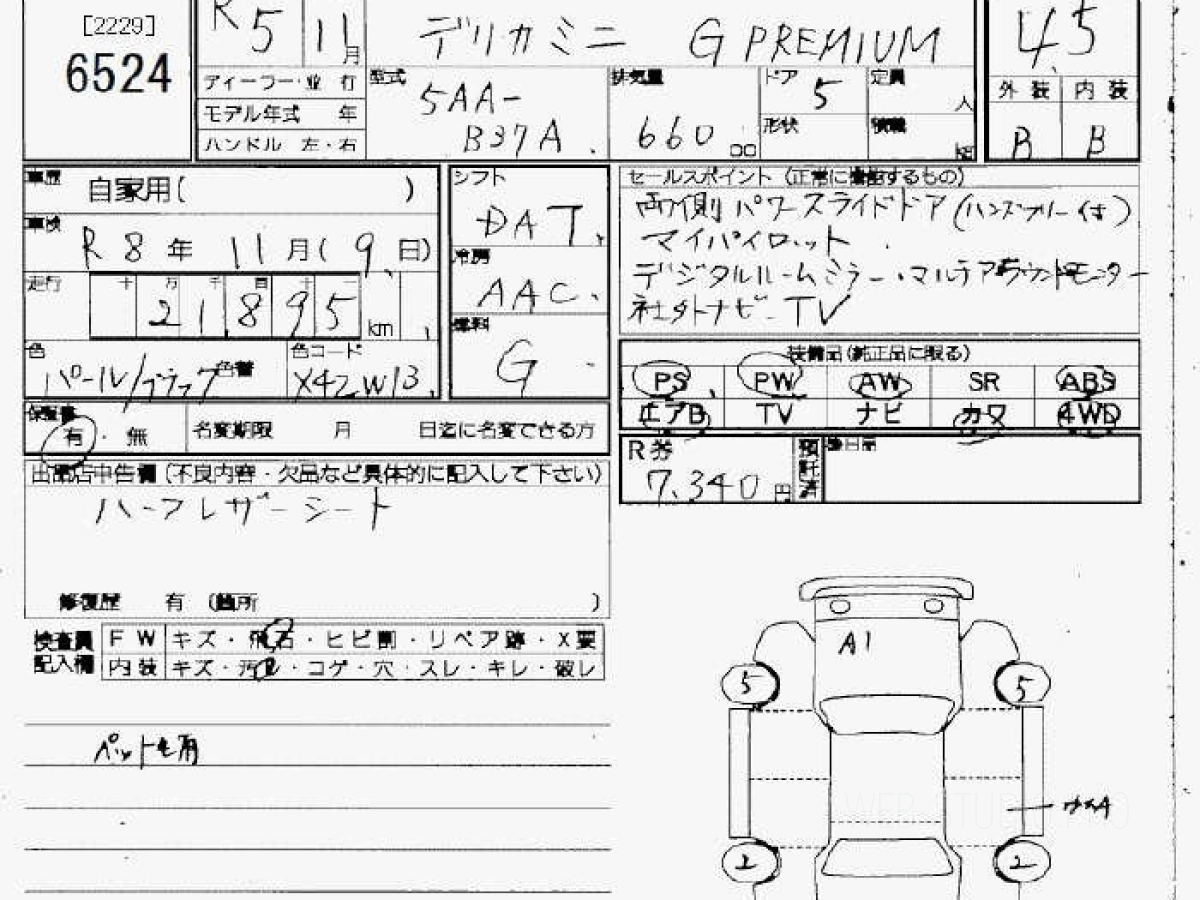 [2229]
6524
R 5 11月
デリカミニ G PREMIUM
4.5
ディーラー・並 行
モデル年式 年
ハンドル 左・右
型式 5AA-
B37A
排気量 660 cc
ドア 5
形状
定員 人
積載 kg
外装 内装
B B
車歴 自家用( )
車検 R 8 年 11 月( 9 日)
走行 十 万 千 百 十 一
2 1 8 9 5 km
色 パール/ブラック 色替
色コード X42 W13
シフト DAT
冷房 AAC
燃料 G
セールスポイント (正常に機能するもの)
両側パワースライドドア(ハンズフリー付)
マイパイロット
デジタルルームミラー・マルチアラウンドモニター
社外ナビ・TV
装備品(純正品に限る)
PS PW AW SR ABS
エアB TV ナビ カワ 4WD
保証書
有・無 名変期限 月 日迄に名変できる方
R券 7,340 円 預託済
出品店申告欄(不良内容・欠品など具体的に記入して下さい)
ハーフレザーシート
修復歴 有 (箇所 )
検査員記入欄
FW キズ・飛石・ヒビ割・リペア跡・X要
内装 キズ・汚レ・コゲ・穴・スレ・キレ・破レ
A1
5 5
2 2